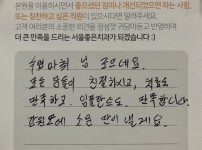 본원을 이용하시면서 좋으셨던 점이나 개선되었으면 하는 사항,
또는 칭찬하고 싶은 직원이 있으시다면 알려주세요.
고객 여러분의 소중한 의견을 정성껏 귀담아듣고 반영하여
더 큰 만족을 드리는 서울좋은치과가 되겠습니다 :)
수면마취 넘 좋으네요.
모든 분들이 친절하시고, 치료도
만족하고, 임플란트도 만족합니다.
강원도에 소문 많이 낼게요.